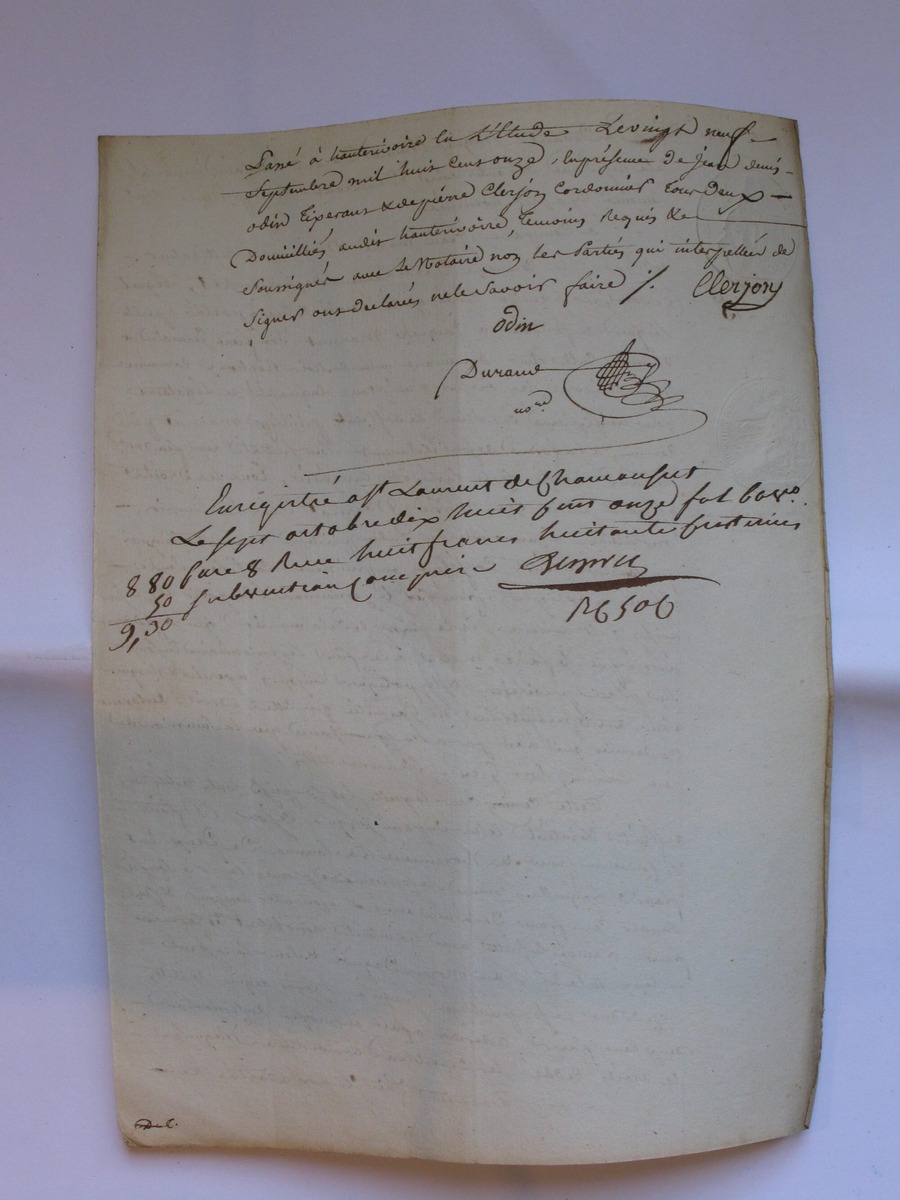 Passé à hauterivoire en L'Etude Le vingt neuf
Septembre mil huit cent onze, en présence de Jean denis
odin tixerant & de pierre Clerjon Cordonnier tous deux
Domiciliés audit hauterivoire, temoins requis &
Soussignés avec Le Notaire non Les Parties qui interpellées de
Signer ont declarés ne le Savoir faire ./. Clerjon
odin
Durand
no.re
Enregistré a St Laurent de Chamousset
Le sept octobre dix huit cent onze fol
8 80 Case 8 Recu huit francs huitante centimes
50 subvention comprise
9,30
Del.